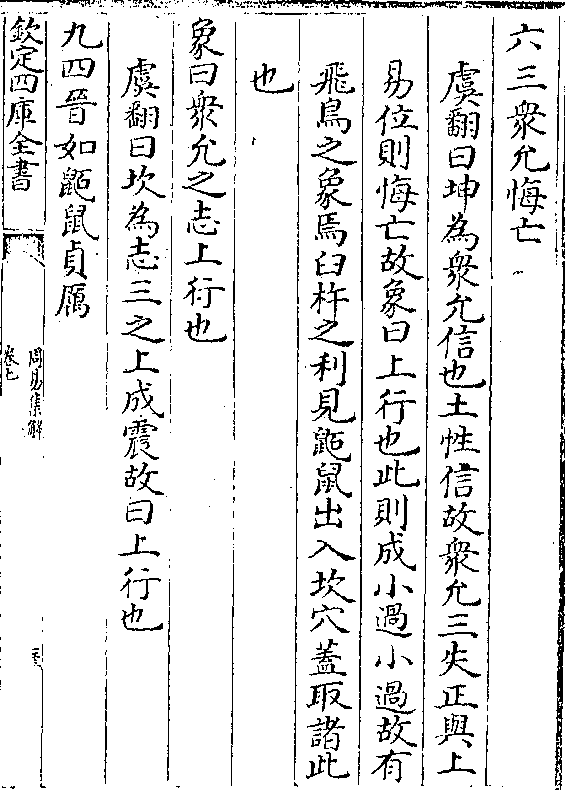 六三衆允悔亡
虞翻曰坤為衆允信也土性信故衆允三失正與上
易位則悔亡故象曰上行也此則成小過小過故有
飛鳥之象焉臼杵之利見鼫鼠出入坎穴蓋取諸此
也
象曰衆允之志上行也
虞翻曰坎為志三之上成震故曰上行也
九四晉如鼫鼠貞厲
欽定四庫全書
周易集解
卷七